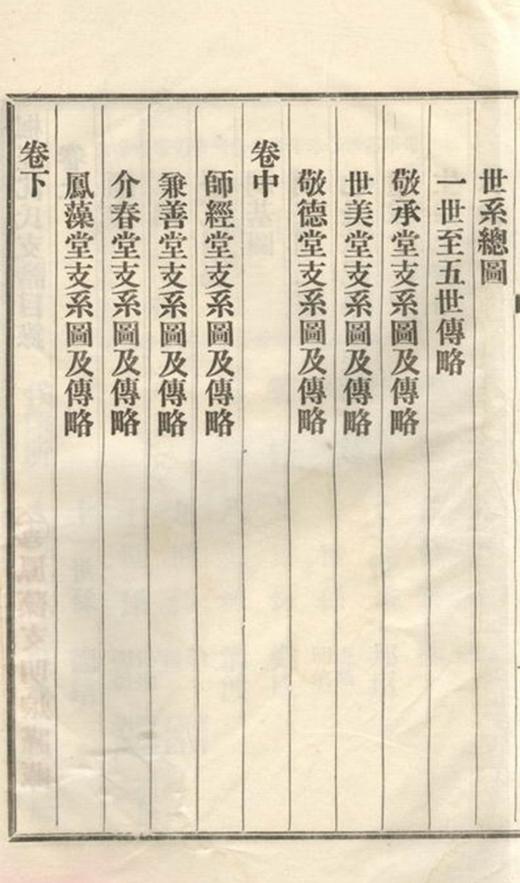 世系總圖
一世至五世傳略
敬承堂支系圖及傳略
世美堂支系圖及傳略
敬德堂支系圖及傳略
卷中
師經堂支系圖及傳略
兼善堂支系圖及傳略
介春堂支系圖及傳略
鳳藻堂支系圖及傳略
卷下